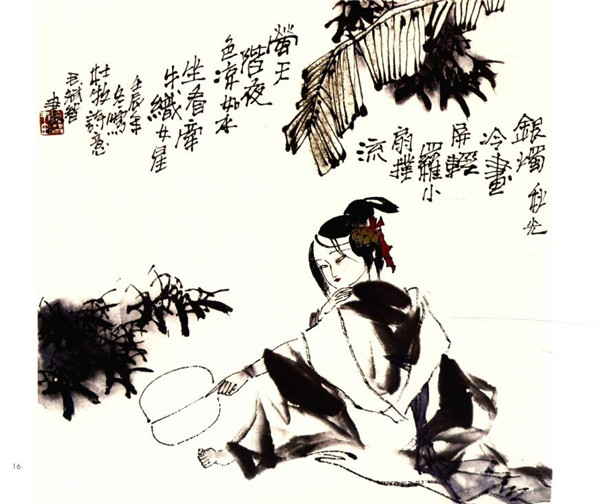 銀燭秋光
冷畫
屏輕
羅小
扇撲
流
螢天
階夜
色涼如水
坐看牽
牛織女星
壬辰年
杜牧詩意
16